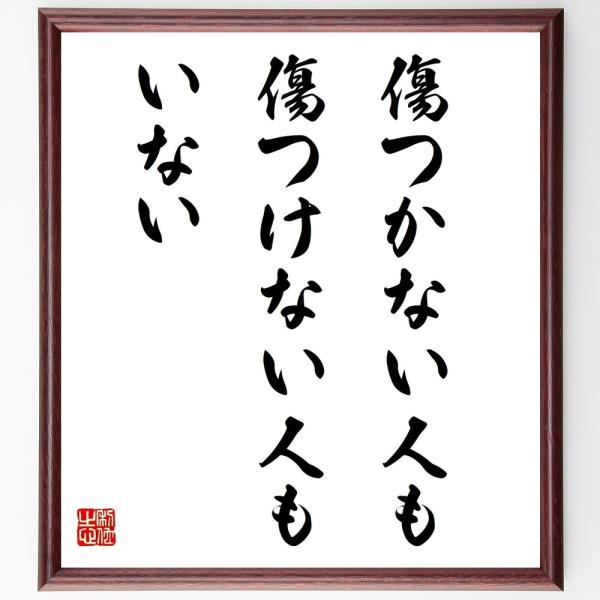 傷つかない人も
傷つけない人も
いない